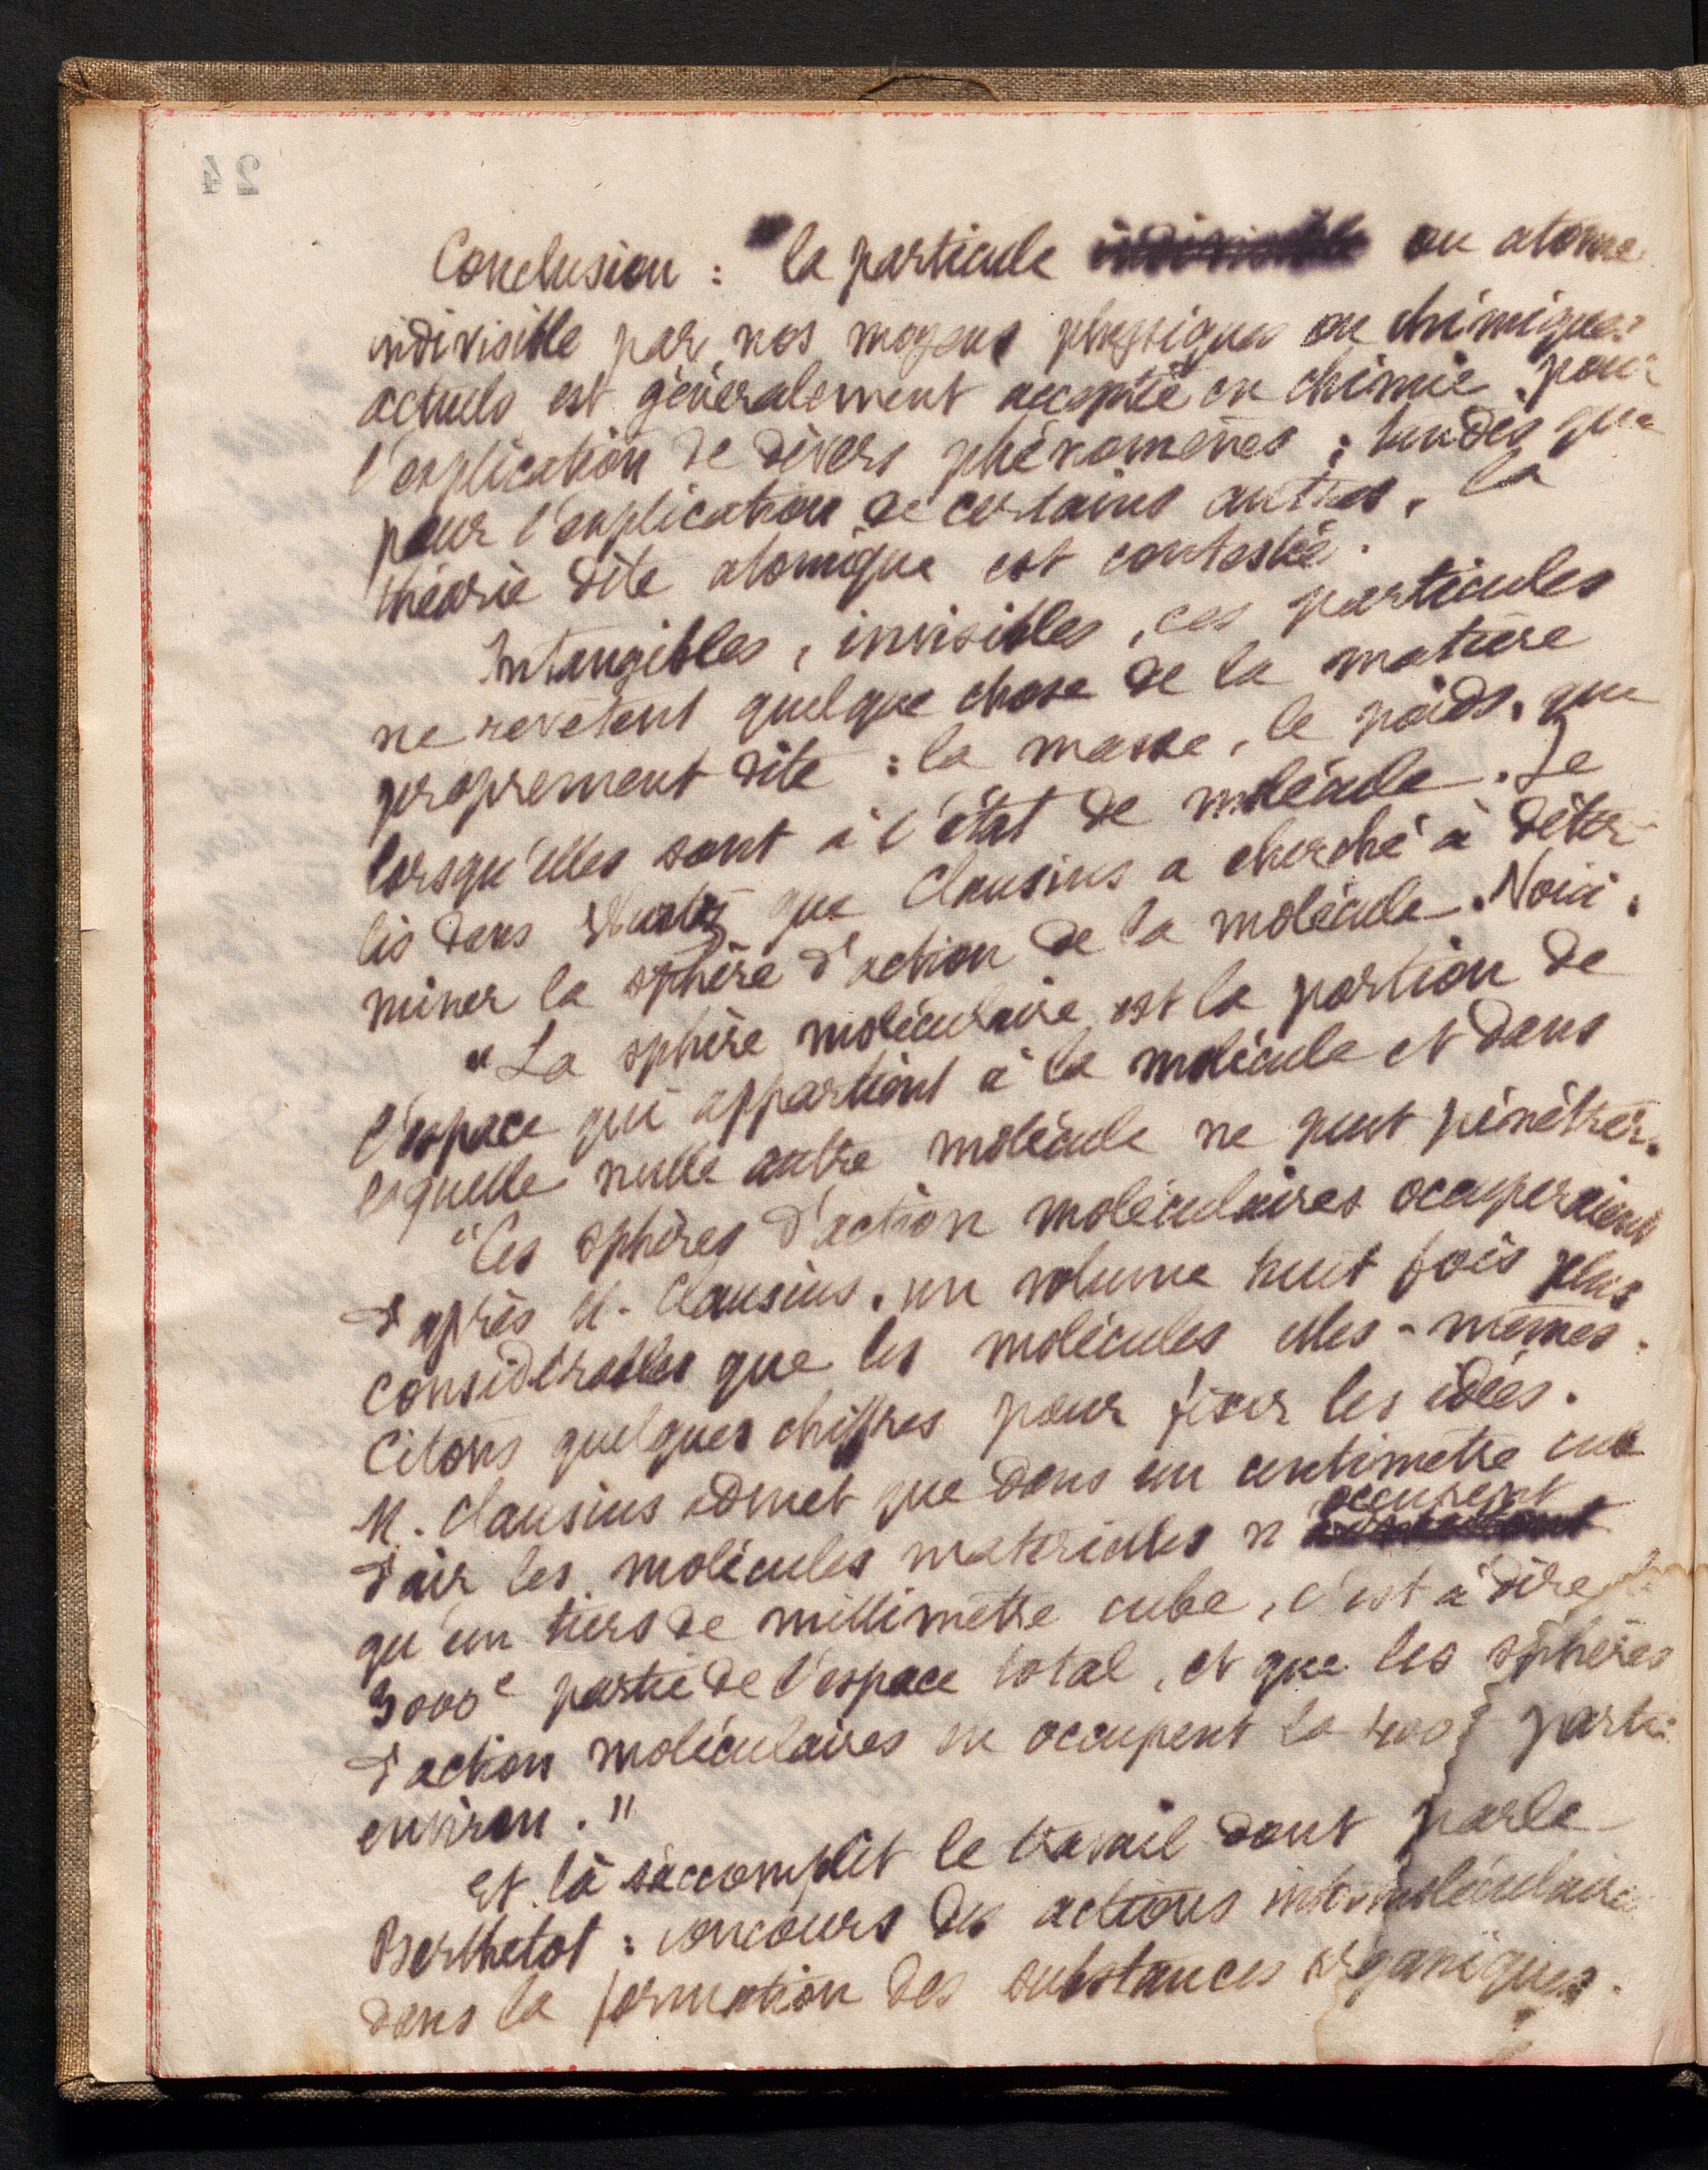 24
Conclusion : la particule indivisible ou atome
indivisible par nos moyens physiques ou chimiques
actuels est généralement acceptée en chimie pour
l'explication de divers phénomènes ; tandis que
pour l'explication de certains autres, la
théorie dite atomique est contestée.
Intangibles, invisibles, ces particules
ne revêtent quelque chose de la matière
proprement dite : la masse, le poids, que
lorsqu'elles sont à l'état de molécule. Je
lis dans Wurtz que Clausius a cherché à déter-
miner la sphère d'action de la molécule. Voici :
"La sphère moléculaire est la portion de
l'espace qui appartient à la molécule et dans
laquelle nulle autre molécule ne peut pénétrer.
"Ces sphères d'action moléculaires occuperaient
d'après M. Clausius, un volume huit fois plus
considérables que les molécules elles-mêmes.
Citons quelques chiffres pour fixer les idées.
M. Clausius admet que dans un centimètre cube
d'air les molécules matérielles n'occupent
qu'un tiers de millimètre cube, c'est à dire la
3000e partie de l'espace total, et que les sphères
d'action moléculaires en occupent la 400e partie
environ."
Et là s'accomplit le travail dont parle
Berthelot : concours des actions intermoléculaires
dans la formation des substances organiques.